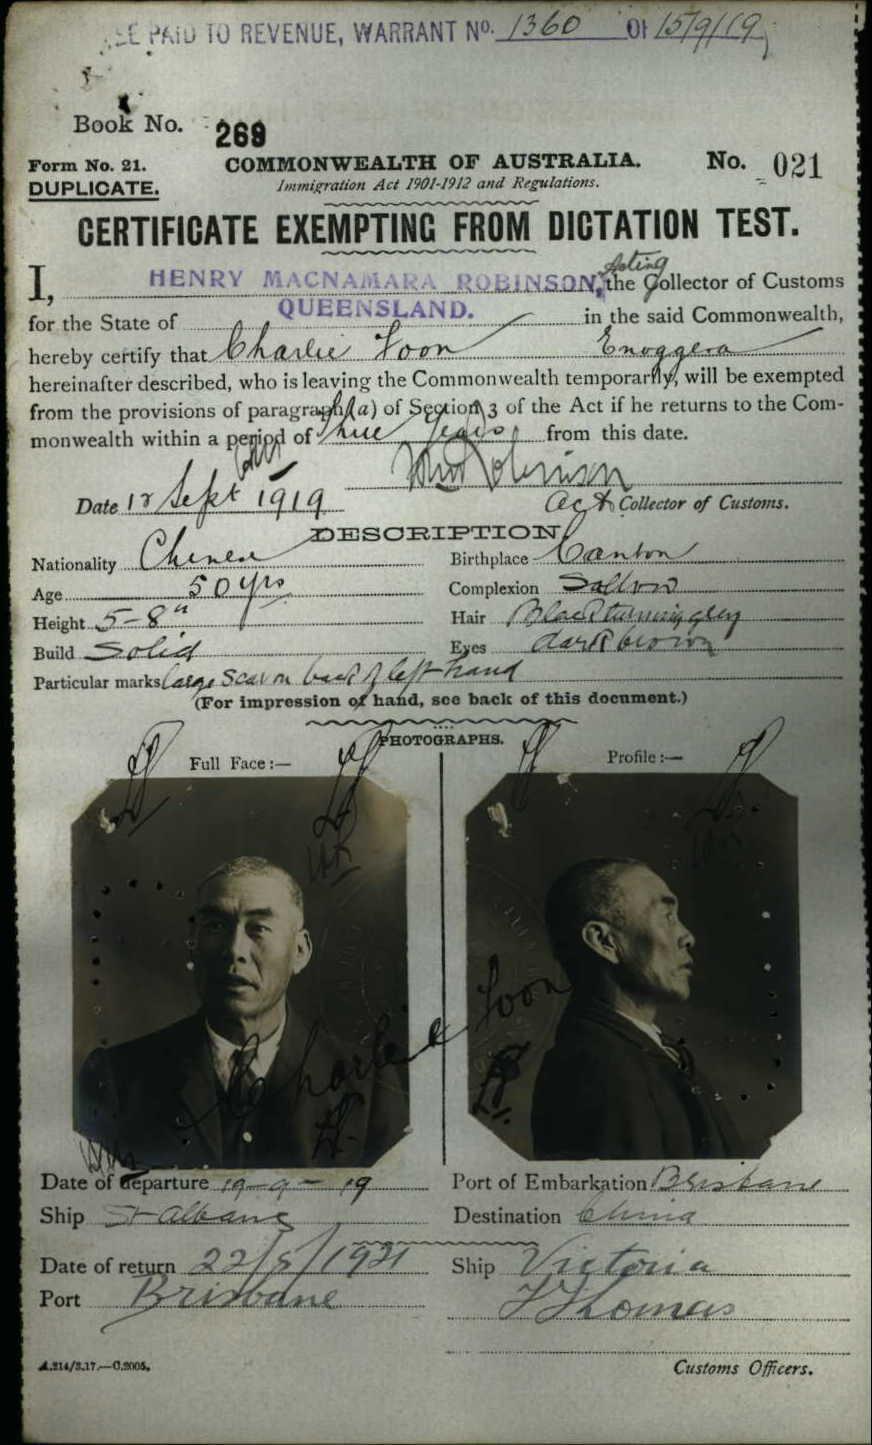 FEE PAID TO REVENUE, WARRANT No. 1360 Of 15/9/19
Book No. 269
Form No. 21. COMMONWEALTH OF AUSTRALIA. No. 021
DUPLICATE. Immigration Act 1901-1912 and Regulations.
CERTIFICATE EXEMPTING FROM DICTATION TEST.
Acting
I, HENRY MACNAMARA ROBINSON, the Collector of Customs
for the State of QUEENSLAND. in the said Commonwealth,
hereby certify that Charlie Loon Enoggera
hereinafter described, who is leaving the Commonwealth temporarily, will be exempted
from the provisions of paragraph (a) of Section 3 of the Act if he returns to the Com-
monwealth within a period of three Years from this date.
Date Sept 1919 Act Collector of Customs.
DESCRIPTION
Nationality Chinese Birthplace Canton
Age 50 yrs Complexion Sallow
Height 5-8" Hair Black turning grey
Build Solid Eyes dark brown
Particular marks large Scar on back of left hand
(For impression of hand, see back of this document.)
PHOTOGRAPHS.
Full Face:— Profile:—
Charlie Loon
Date of departure 19-9-19 Port of Embarkation Brisbane
Ship St Albans Destination China
Date of return 22/5/1921 Ship Victoria
Port Brisbane Thomas
A.214/3.17.—C.2005. Customs Officers.